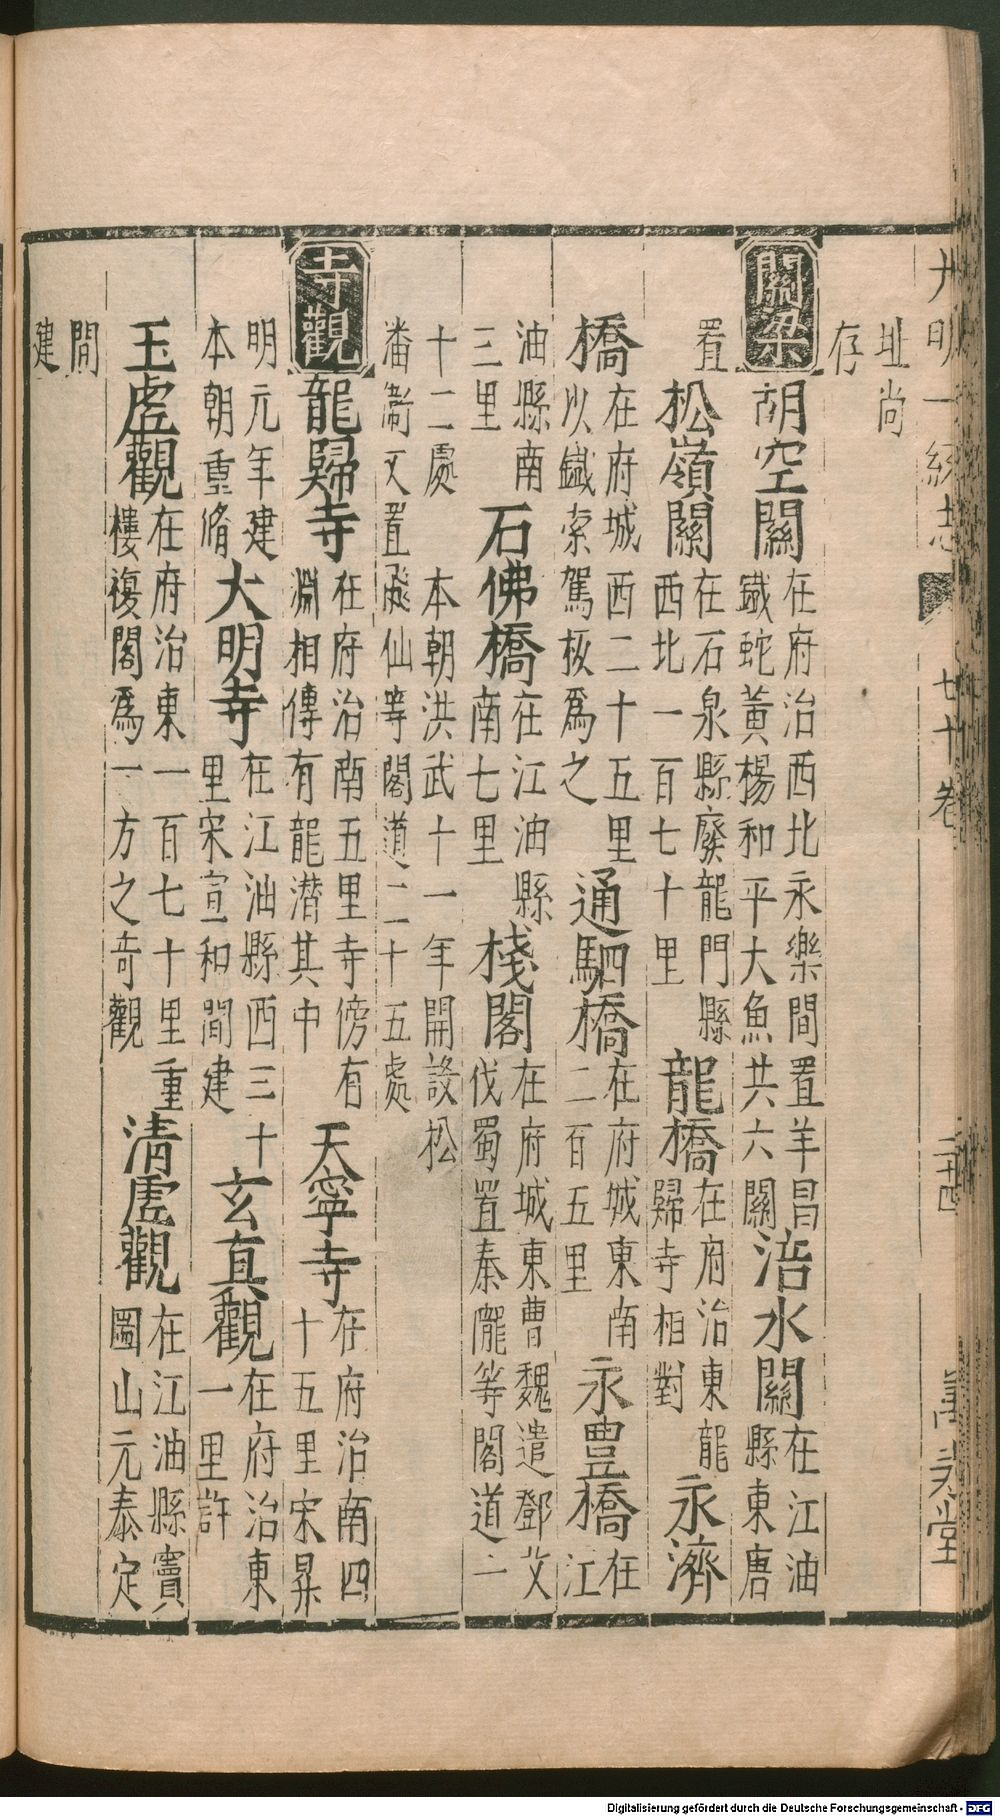 大明一統志 七十卷 二十四 萬壽堂
址尚
存
關梁 胡空關 在府治西北永樂間置羊昌
鐵蛇黃楊和平大魚共六關 涪水關 在江油
縣東唐
置 松嶺關 在石泉縣廢龍門縣
西北一百七十里 龍橋 在府治東龍
歸寺相對 永濟
橋 在府城西二十五里
以鐵索駕板為之 通駟橋 在府城東南
二百五里 永豊橋 在江
油縣南
三里 石佛橋 在江油縣
南七里 棧閣 在府城東曹魏遣鄧艾
伐蜀置秦隴等閣道二
十二處 本朝洪武十一年開設松
潘衛又置飛仙等閣道二十五處
寺觀 龍歸寺 在府治南五里寺傍有
淵相傳有龍潛其中 天寧寺 在府治南四
十五里宋昇
明元年建
本朝重脩 大明寺 在江油縣西三十
里宋宣和間建 玄真觀 在府治東
一里許
玉虛觀 在府治東一百七十里重
樓複閣為一方之奇觀 清虛觀 在江油縣竇
圌山元泰定
間
建
Digitalisierung gefördert durch die Deutsche Forschungsgemeinschaft - DFG